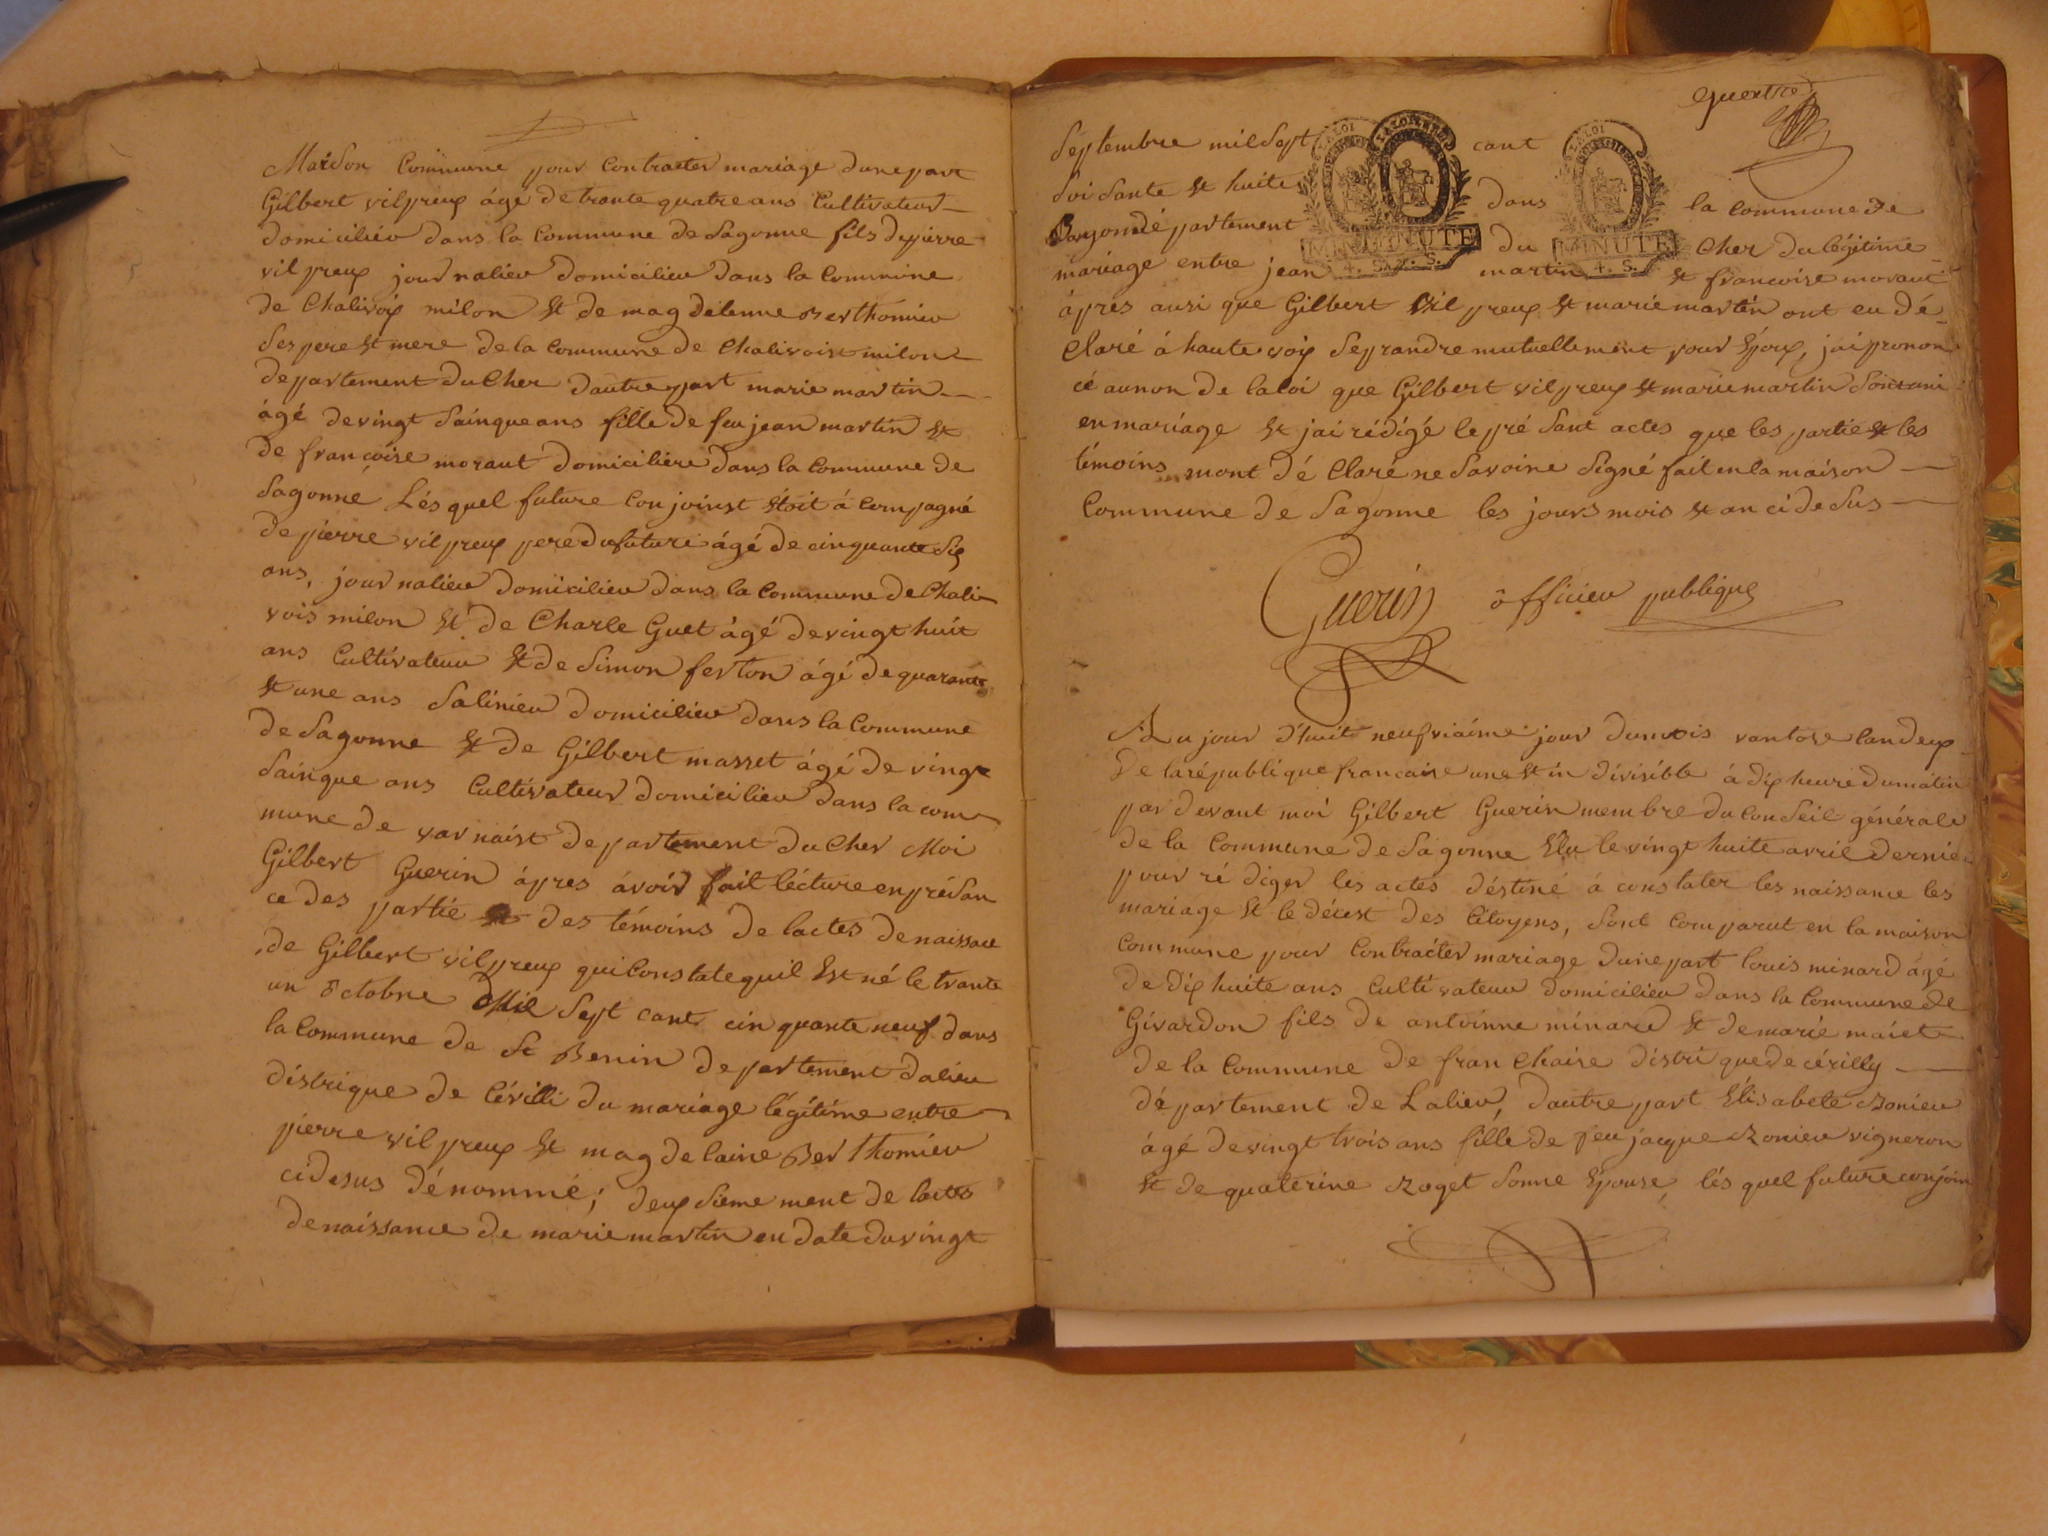 Maison Commune pour Contracter mariage dunepart
Gilbert vilpreux âgé de trante quatre ans Cultivateur
domicilier dans la Commune de Sagonne fils de pierre
vilpreux journalier domicilier dans la Commune
de Chalivoix milon et de magdelenne Berthomier
Ses pere et mere de la Commune de Chalivoist milon
departement du Cher dautre part marie martin
âgé de vingt Sainque ans fille de feu jean martin et
de francoise moraut domiciliere dans la Commune de
Sagonne Lés quel future Conjoinst étoit á compagné
de pierre vilpreux pere du future âgé de cinquante Six
ans, journalier domicilier dans la Commune de Chali
vois milon et de Charle Guet âgé de vingt huit
ans Cultivateur et de Simon ferton âgé de quarante
et une ans Salinier domicilier dans la Commune
de Sagonne et de Gilbert masset âgé de vingt
Sainque ans Cultivateur domicilier dans la com
mune de varnaist departement du Cher Moi
Gilbert Guerin áprés ávoir fait lécture en présan
ce des partie et des témoins de lactes de naissace
de Gilbert vilpreux qui Constate quil Est né le trante
un Octobre Mil Sept cant cinquante neuf dans
la Commune de St Benin departement dalier
distrique de Cérilli du mariage légitime entre
pierre vilpreux et magdelaine Berthomier
cidesus dénommé; deuxsieme ment de lactes
de naissance de marie martin en date du vingt
Guerthe
Septembre mil Sept cant
Soisante et huite dans la Commune de
departement du Cher du légitime
mariage entre jean martin et francoise moraut
áprés ausi que Gilbert vilpreux et marie martin ont eu dé
Claré á haute voix Se prandre mutuellement pour Époux, jai pronon
cé au non de la loi que Gilbert vilpreux et marie martin Sont uni
en mariage et jai rédigé le pré Sant actes que les partie et les
témoins mont dé Claré ne Savoire Signé fait en la maison
Commune de Sagonne les jours mois et an ci de Sus
LA LOI
MINUTE
4. S.
LA LOI
MINUTE
4. S.
Guerin officier publique
Au jour d'huit neufviaime jour du mois vantose lan deux
De la république francaise une et in divisible á dix heure du matin
par devant moi Gilbert Guerin membre du Conseil générale
de la Commune de Sagonne Élu le vingt huite avril dernie
pour ré diger les actes déstiné á constater les naissance les
mariage et le décest des Citoyens, Sont Comparut en la maison
Commune pour Contracter mariage dune part louis minard âgé
de dix huite ans Cultivateur domicilier dans la Commune de
Givardon fils de antoinne minard et de marie maiet
de la Commune de franchaise distrique de cérilly
département de Lalier, dautre part Élisabete Bonier
âgé de vingt trois ans fille de feu jacque Bonier vigneron
et de quaterine Roget Sonne Épouse, lés quel future conjoin